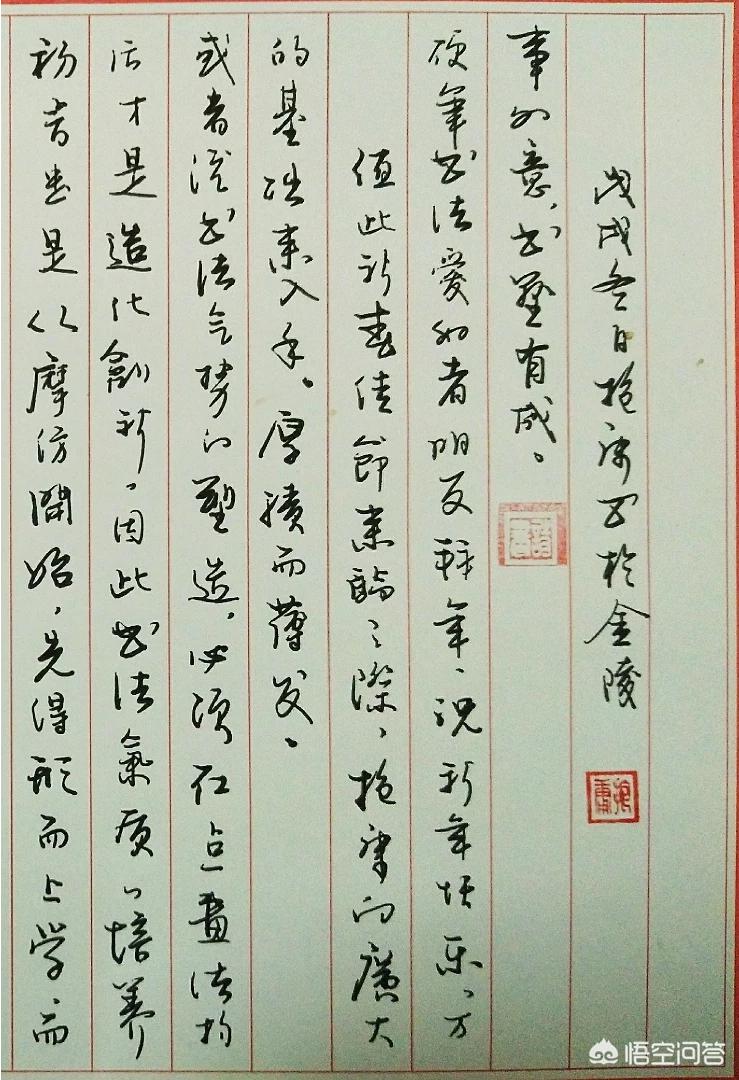 初是以摩仿開始，先得形而上学，而
后才是造化創新，因此书法氣质的培养
或者说书法气势的塑造，必须在点畫结构
的基础来入手。厚積而薄发。
值此新春佳節来臨之際，抱庸向廣大
硬笔书法愛好者朋友拜年，祝新年快乐，万
事如意，书藝有成。
戊戌冬日抱庸书於金陵
抱庸
悟空问答